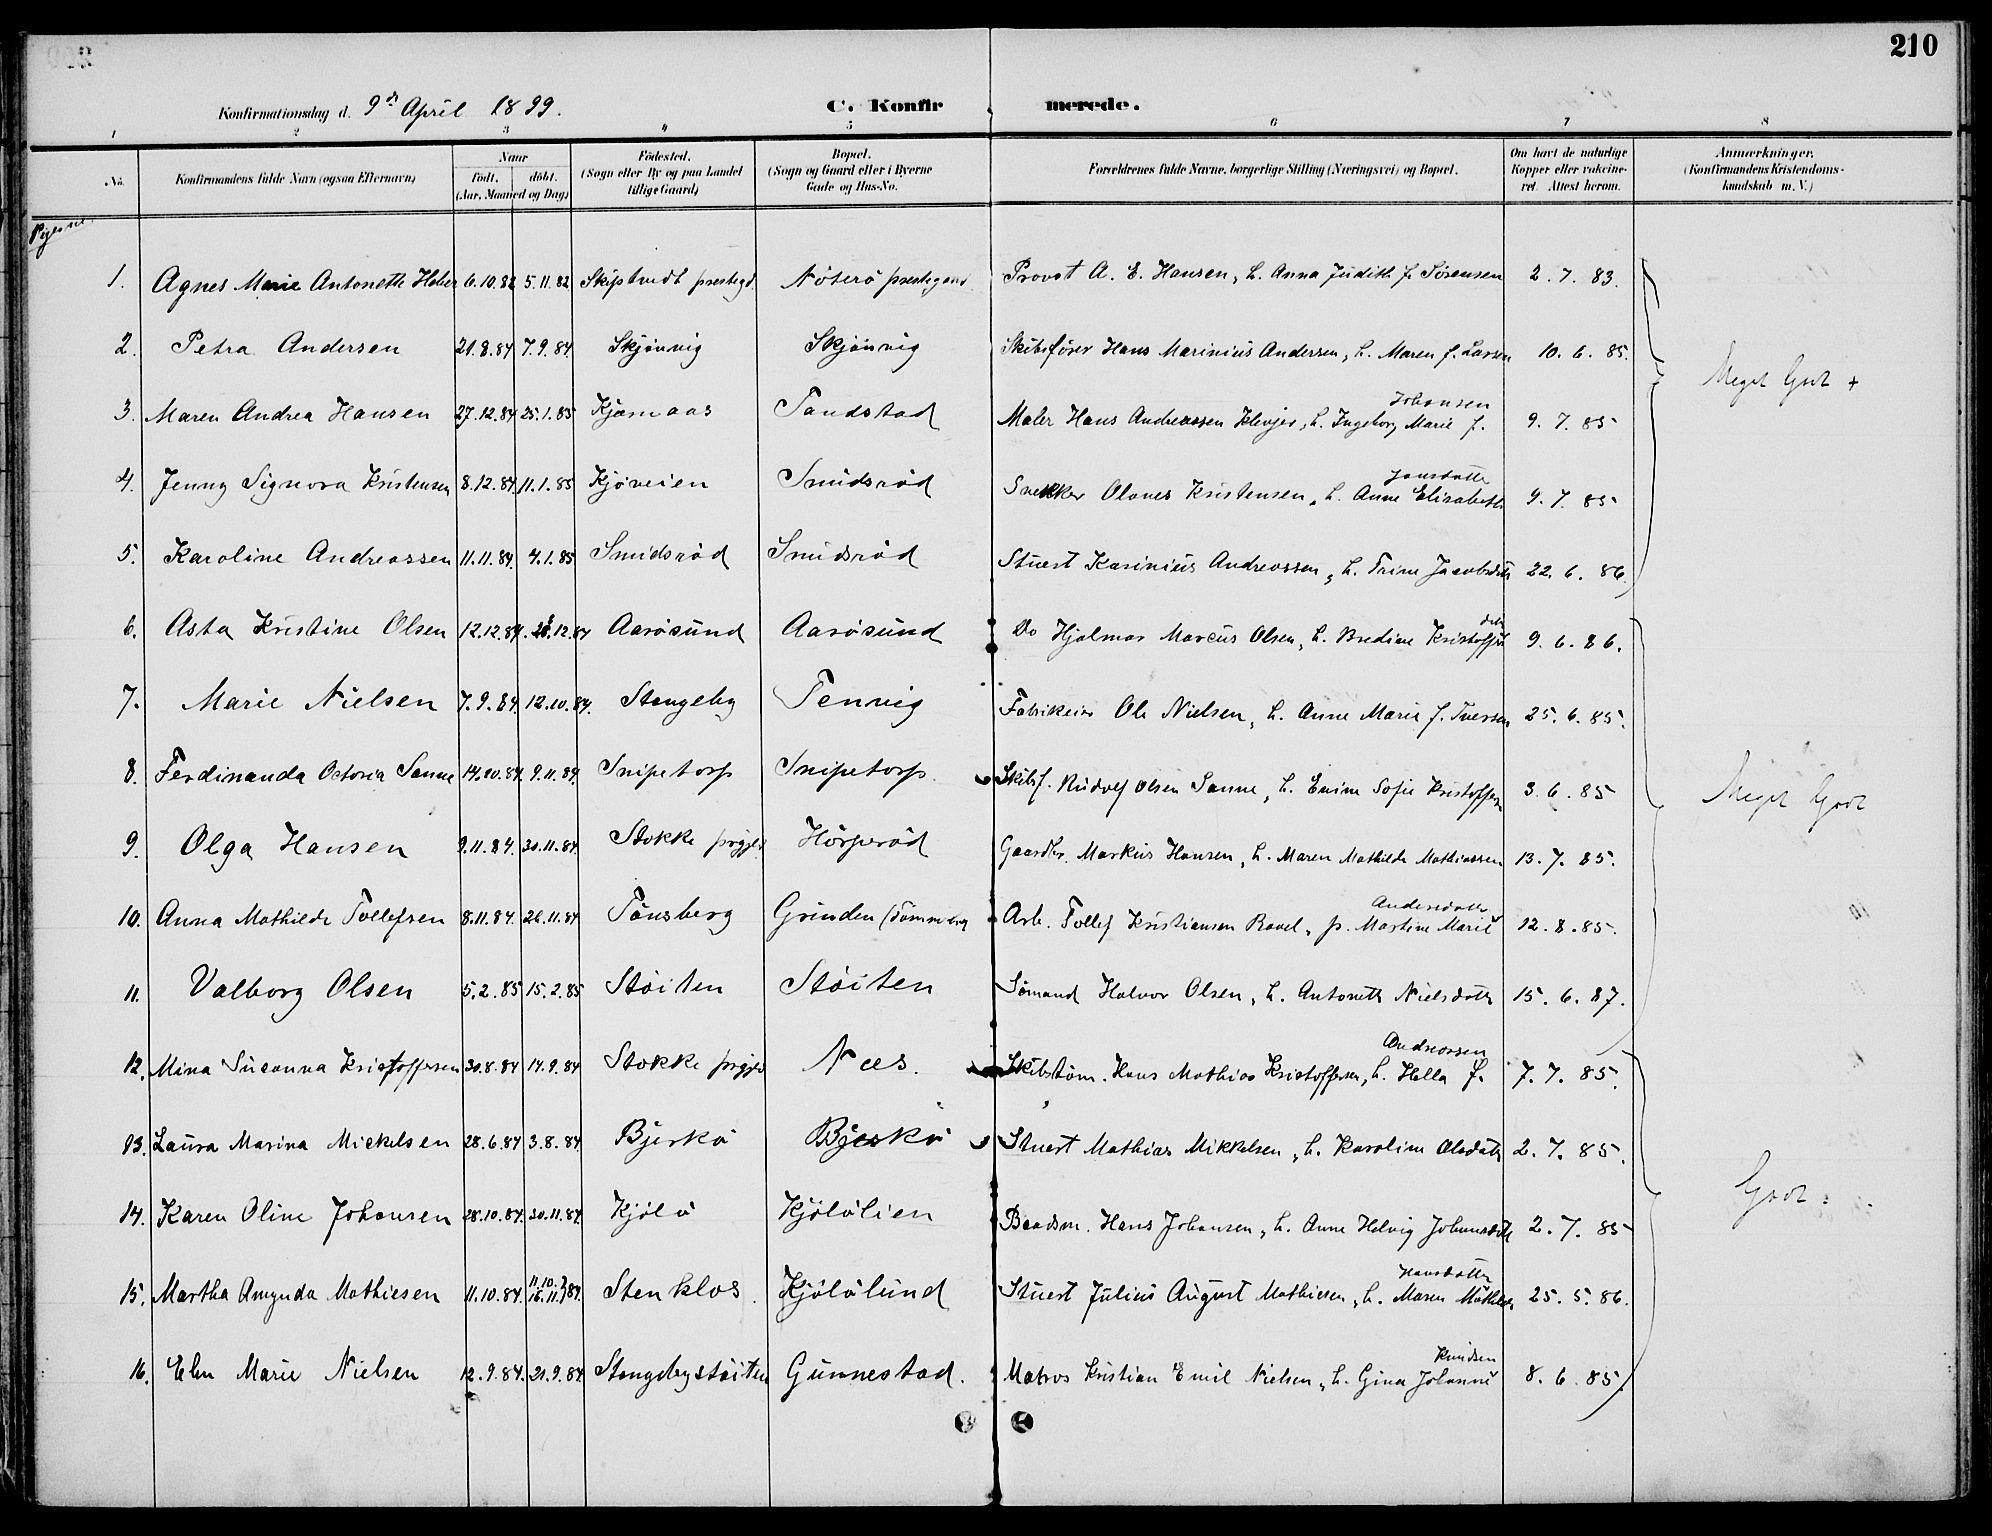 210
Konfirmationsdag d. 9de April 1899.
C. Konfirmerede.
1 2 3 4 5 6 7 8
No.
Konfirmandens fulde Navn (ogsaa Efternavn)
Naar
født. døbt.
(Aar, Maaned og Dag)
Fødested.
(Sogn eller By og paa Landet
tillige Gaard)
Bopæl.
(Sogn og Gaard eller i Byerne
Gade og Hus-No.
Forældrenes fulde Navne, borgerlige Stilling (Næringsvei) og Bopæl.
Om havt de naturlige
Kopper eller vakcine-
ret. Attest herom.
Anmærkninger.
(Konfirmandens Kristendoms-
kundskab m. V.)
Pigerne.
1. Agnes Marie Antonette 6.10.82 5.11.82 Skiptvedt prestegd. Nøterø prestegaard Provst A. E. Hansen, h. Anna Judith f. Sørensen 2.7.83.
2. Petra Andersen 21.8.84 7.9.84 Skjønvig Skjønvig Skibsfører Hans Marinius Andersen, h. Maren f. Larsen 10.6.85.
Meget Godt +
3. Maren Andrea Hansen 27.12.84 25.1.85 Kjærnaas Tandstad Maler Hans Andreassen Klevjer, h. Ingeborg Marie f. Johansen 9.7.85
4. Jenny Signora Kristensen 8.12.84 11.1.85 Kjøveien Smidsrød Snekker Olaves Kristensen, h. Anne Elisabeth Jonsdatter 9.7.85
5. Karoline Andreassen 11.11.84. 4.1.85 Smidsrød Smidsrød Stuert Karinius Andreassen, h. Trine Jacobsdtr 22.6.86.
6. Asta Kristine Olsen 12.12.84. 28.12.84 Aarøsund Aarøsund Do Hjalmar Marcus Olsen, h. Brediane Kristoffersdtr 9.6.86.
7. Marie Nielsen 7.9.84. 12.10.84. Stangeby Tenvig Fabrikeier Ole Nielsen, h. Anne Marie f. Iversen 25.6.85.
8. Ferdinanda Octoria Sanne 14.10.84 9.11.84 Snipetorp Snipetorp. Skibsf. Rudolf Olsen Sanne, h. Emine Sofie Kristoffers 3.6.85
Meget Godt
9. Olga Hansen 9.11.84. 30.11.84. Stokke prgjeld Hørperød Gaardbr. Markus Hansen, h. Maren Mathilde Mathiassen 13.7.85.
10. Anna Mathilde Tollefsen 8.11.84. 26.11.84 Tønsberg Grinden Arb. Tollef Kristiansen Ravel, p. Martine Marie Andersdatter 12.8.85.
11. Valborg Olsen 5.2.85 15.2.85 Støiten Støiten Sømand Halvor Olsen, h. Antonette Nielsdatter 15.6.87.
12. Mina Susanna Kristoffersen 30.8.84 14.9.84 Stokke prgjeld Nees. Skibstøm. Hans Mathias Kristoffersen, h. Hella f. Andreassen 7.7.85.
13. Laura Marina Mickelsen 28.6.84 3.8.84. Bjerkø Bjerkø Stuert Mathias Mikkelsen, h. Karoline Olsdatr 2.7.85.
14. Karen Oline Johansen 28.10.84. 30.11.84. Kjølø Kjøløllien Baadsm. Hans Johansen, h. Anne Helvig Johansdtr 2.7.85
Godt.
15. Martha Amynda Mathiesen 11.10.84. 11.10. / 16.11. } 84. Stenklos. Kjøløllund Stuert Julius August Mathiesen, h. Maren Mathilde Hansdatter 25.5.86.
16. Elen Marie Nielsen 12.9.84. 21.9.84 Stangebystøiten Gunnestad. Matros Kristian Emil Nielsen, h. Gina Johanne Knudsen 8.6.85.